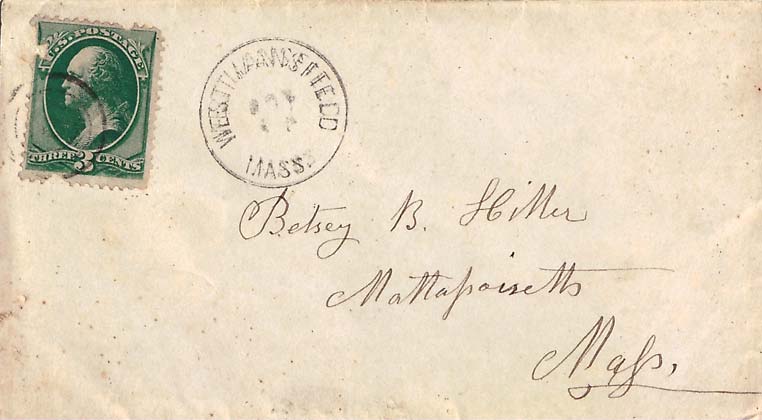 U.S. POSTAGE
THREE 3 CENTS
WEST MANSFIELD
MASS.
Betsey B. Hiller
Mattapoisetts
Mass.